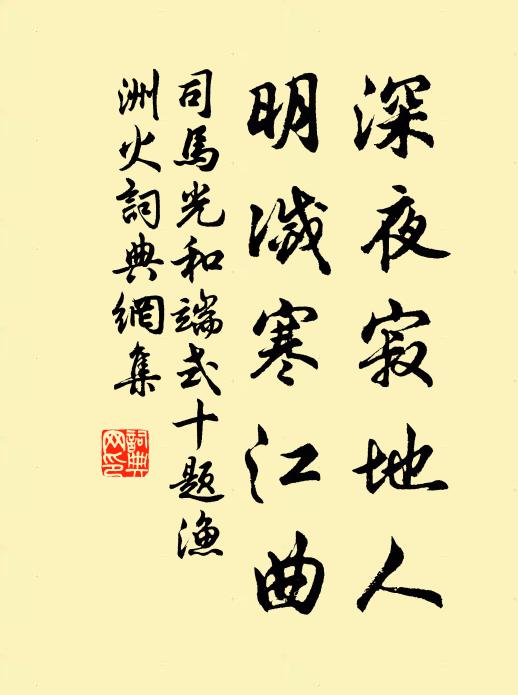 深夜寂地人
明滅寒江曲
司馬光和端式十題漁
洲火詞典網集
詞典网印